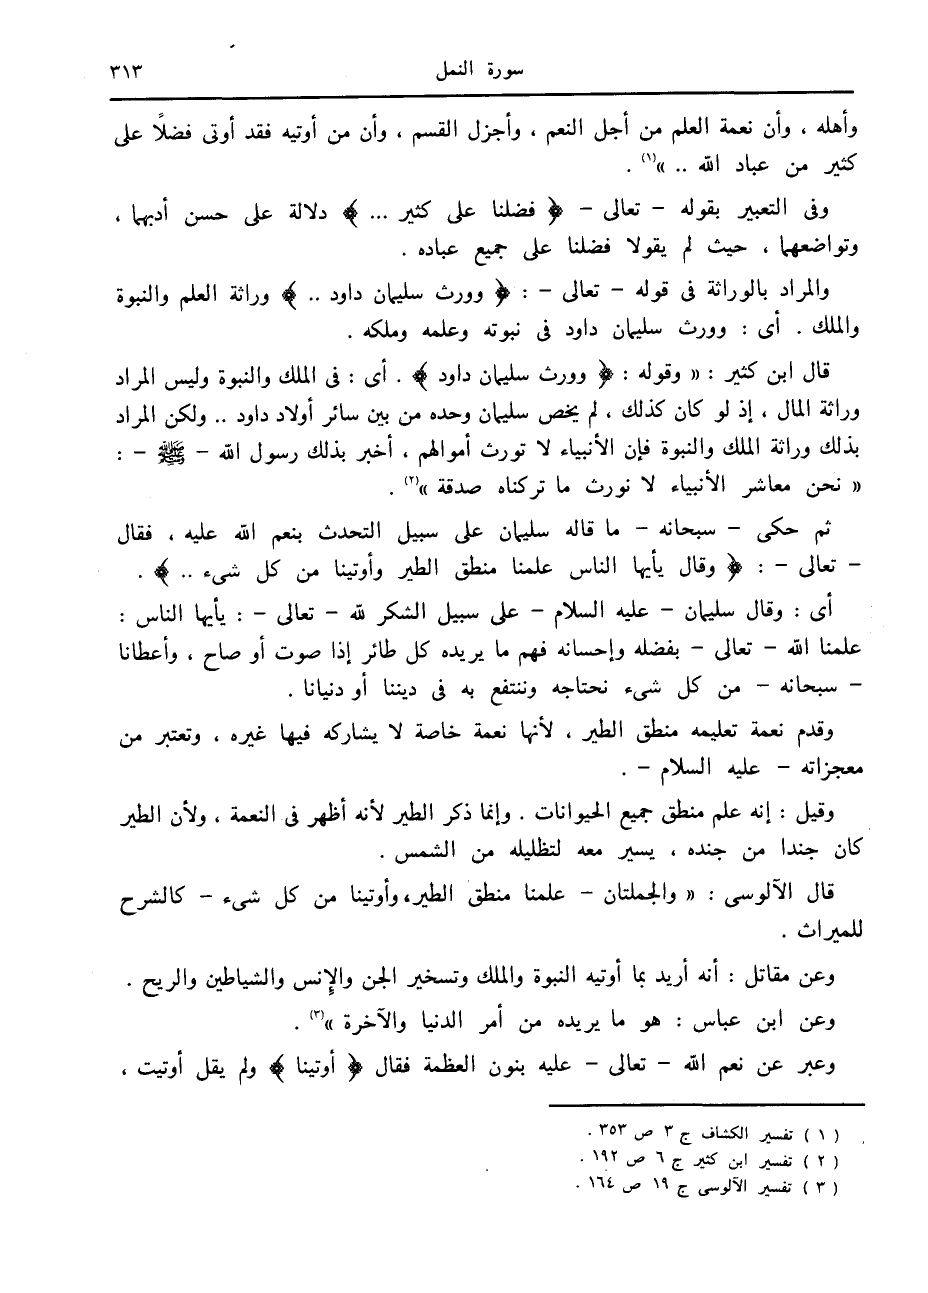 سورة النمل ٣١٣
وأهله ، وأن نعمة العلم من أجل النعم ، وأجزل القسم ، وأن من أوتيه فقد أوتى فضلًا على
كثير من عباد الله .. »(١) .
وفى التعبير بقوله – تعالى – ﴿ فضلنا على كثير ... ﴾ دلالة على حسن أدبهما ،
وتواضعهما ، حيث لم يقولا فضلنا على جميع عباده .
والمراد بالوراثة فى قوله – تعالى – : ﴿ وورث سليمان داود .. ﴾ وراثة العلم والنبوة
والملك . أى : وورث سليمان داود فى نبوته وعلمه وملكه .
قال ابن كثير : « وقوله : ﴿ وورث سليمان داود ﴾ . أى : فى الملك والنبوة وليس المراد
وراثة المال ، إذ لو كان كذلك ، لم يخص سليمان وحده من بين سائر أولاد داود .. ولكن المراد
بذلك وراثة الملك والنبوة فإن الأنبياء لا تورث أموالهم ، أخبر بذلك رسول الله – ﷺ – :
« نحن معاشر الأنبياء لا نورث ما تركناه صدقة »(٢) .
ثم حكى – سبحانه – ما قاله سليمان على سبيل التحدث بنعم الله عليه ، فقال
– تعالى – : ﴿ وقال يأيها الناس علمنا منطق الطير وأوتينا من كل شىء .. ﴾ .
أى : وقال سليمان – عليه السلام – على سبيل الشكر لله – تعالى – : يأيها الناس :
علمنا الله – تعالى – بفضله وإحسانه فهم ما يريده كل طائر إذا صوت أو صاح ، وأعطانا
– سبحانه – من كل شىء نحتاجه وننتفع به فى ديننا أو دنيانا .
وقدم نعمة تعليمه منطق الطير ، لأنها نعمة خاصة لا يشاركه فيها غيره ، وتعتبر من
معجزاته – عليه السلام – .
وقيل : إنه علم منطق جميع الحيوانات . وإنما ذكر الطير لأنه أظهر فى النعمة ، ولأن الطير
كان جندا من جنده ، يسير معه لتظليله من الشمس .
قال الآلوسى : « والجملتان – علمنا منطق الطير، وأوتينا من كل شىء – كالشرح
للميراث .
وعن مقاتل : أنه أريد بما أوتيه النبوة والملك وتسخير الجن والإنس والشياطين والريح .
وعن ابن عباس : هو ما يريده من أمر الدنيا والآخرة »(٣) .
وعبر عن نعم الله – تعالى – عليه بنون العظمة فقال ﴿ أوتينا ﴾ ولم يقل أوتيت ،
( ١ ) تفسير الكشاف ج ٣ ص ٣٥٣ .
( ٢ ) تفسير ابن كثير ج ٦ ص ١٩٢ .
( ٣ ) تفسير الآلوسى ج ١٩ ص ١٦٤ .